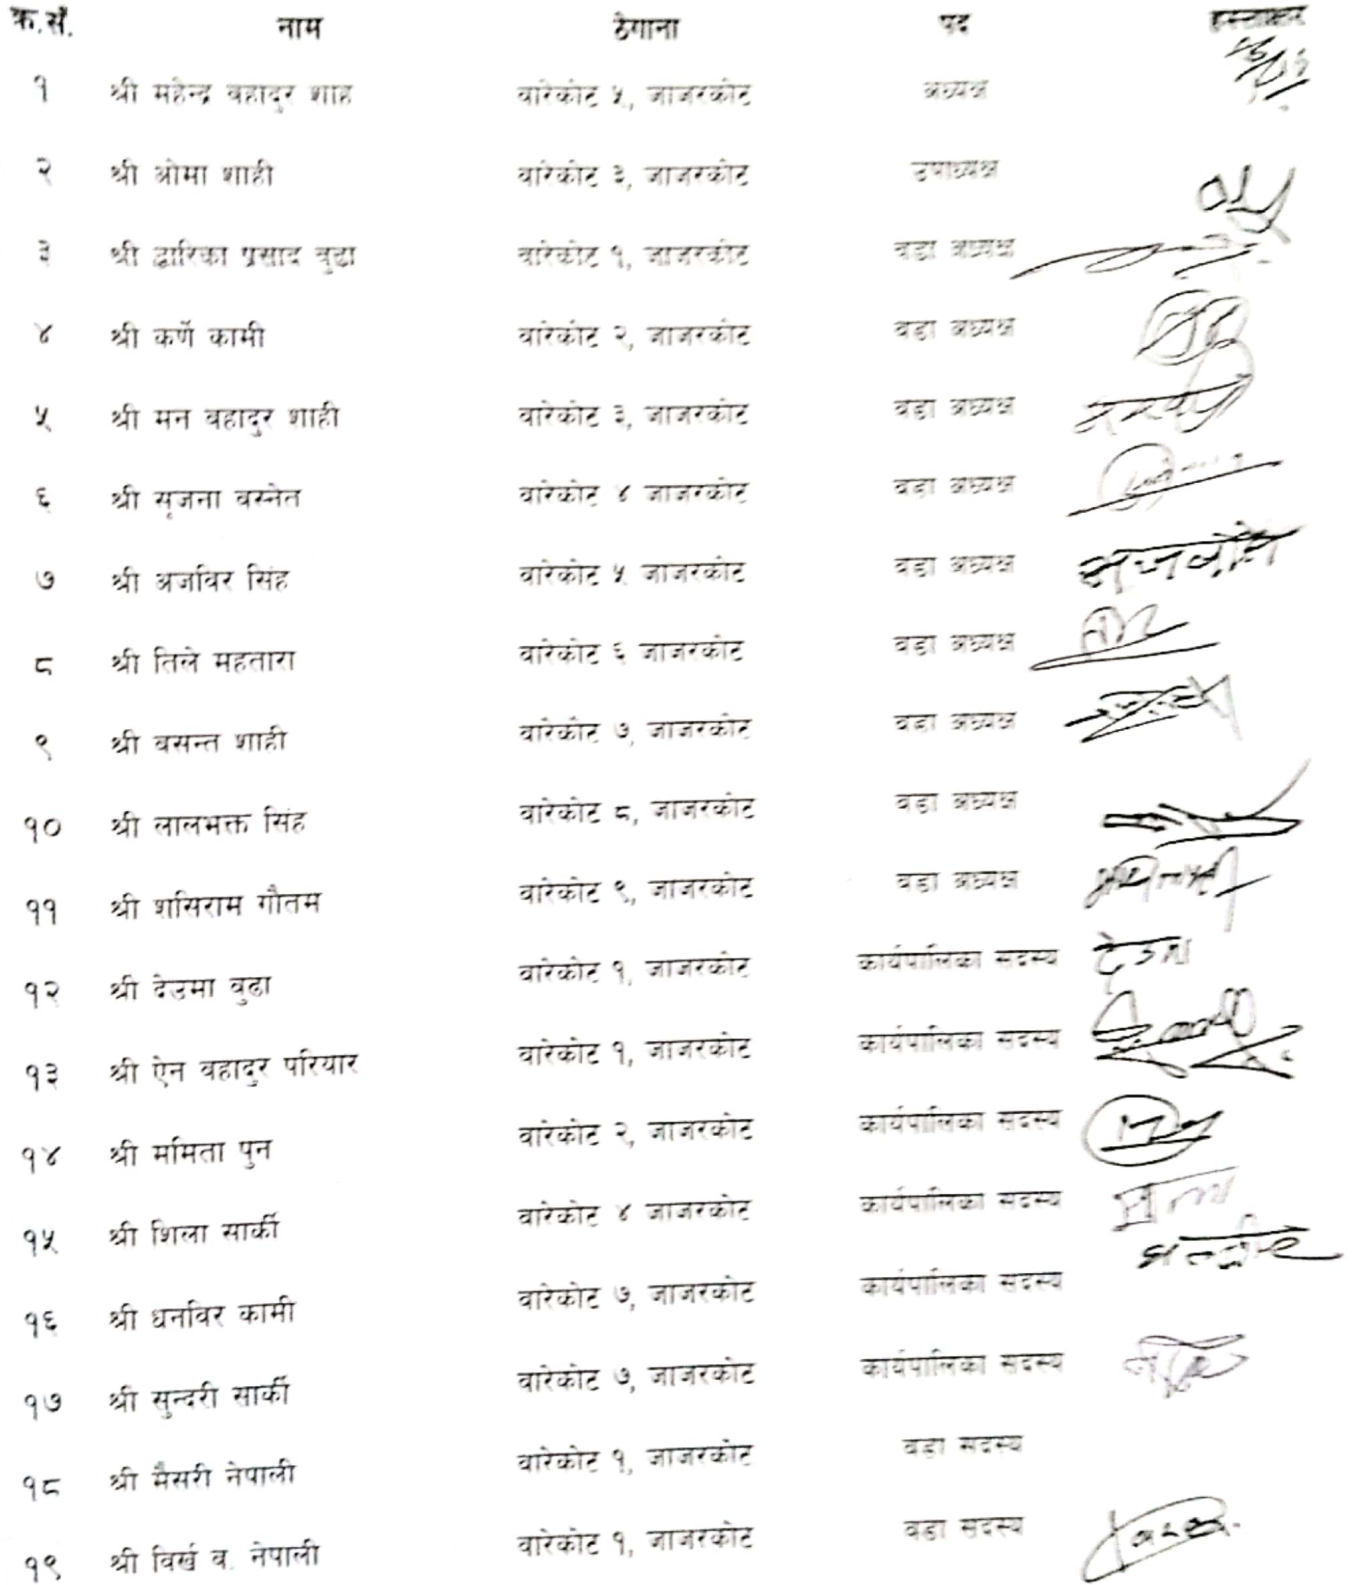 क्र.सं. नाम ठेगाना पद हस्ताक्षर
१ श्री महेन्द्र बहादुर शाह बारेकोट ५, जाजरकोट अध्यक्ष
२ श्री ओमा शाही बारेकोट ३, जाजरकोट उपाध्यक्ष
३ श्री द्वारिका प्रसाद बुढा बारेकोट १, जाजरकोट वडा अध्यक्ष
४ श्री कर्णे कामी बारेकोट २, जाजरकोट वडा अध्यक्ष
५ श्री मन बहादुर शाही बारेकोट ३, जाजरकोट वडा अध्यक्ष
६ श्री सृजना बस्नेत बारेकोट ४ जाजरकोट वडा अध्यक्ष
७ श्री अजविर सिंह बारेकोट ५ जाजरकोट वडा अध्यक्ष
८ श्री तिले महतारा बारेकोट ६ जाजरकोट वडा अध्यक्ष
९ श्री बसन्त शाही बारेकोट ७, जाजरकोट वडा अध्यक्ष
१० श्री लालभक्त सिंह बारेकोट ८, जाजरकोट वडा अध्यक्ष
११ श्री शसिराम गौतम बारेकोट ९, जाजरकोट वडा अध्यक्ष
१२ श्री देउमा बुढा बारेकोट १, जाजरकोट कार्यपालिका सदस्य देउमा
१३ श्री ऐन बहादुर परियार बारेकोट १, जाजरकोट कार्यपालिका सदस्य
१४ श्री ममिता पुन बारेकोट २, जाजरकोट कार्यपालिका सदस्य
१५ श्री शिला सार्की बारेकोट ४ जाजरकोट कार्यपालिका सदस्य
१६ श्री धनविर कामी बारेकोट ७, जाजरकोट कार्यपालिका सदस्य
१७ श्री सुन्दरी सार्की बारेकोट ७, जाजरकोट कार्यपालिका सदस्य
१८ श्री मैसरी नेपाली बारेकोट १, जाजरकोट वडा सदस्य
१९ श्री विर्ख ब. नेपाली बारेकोट १, जाजरकोट वडा सदस्य